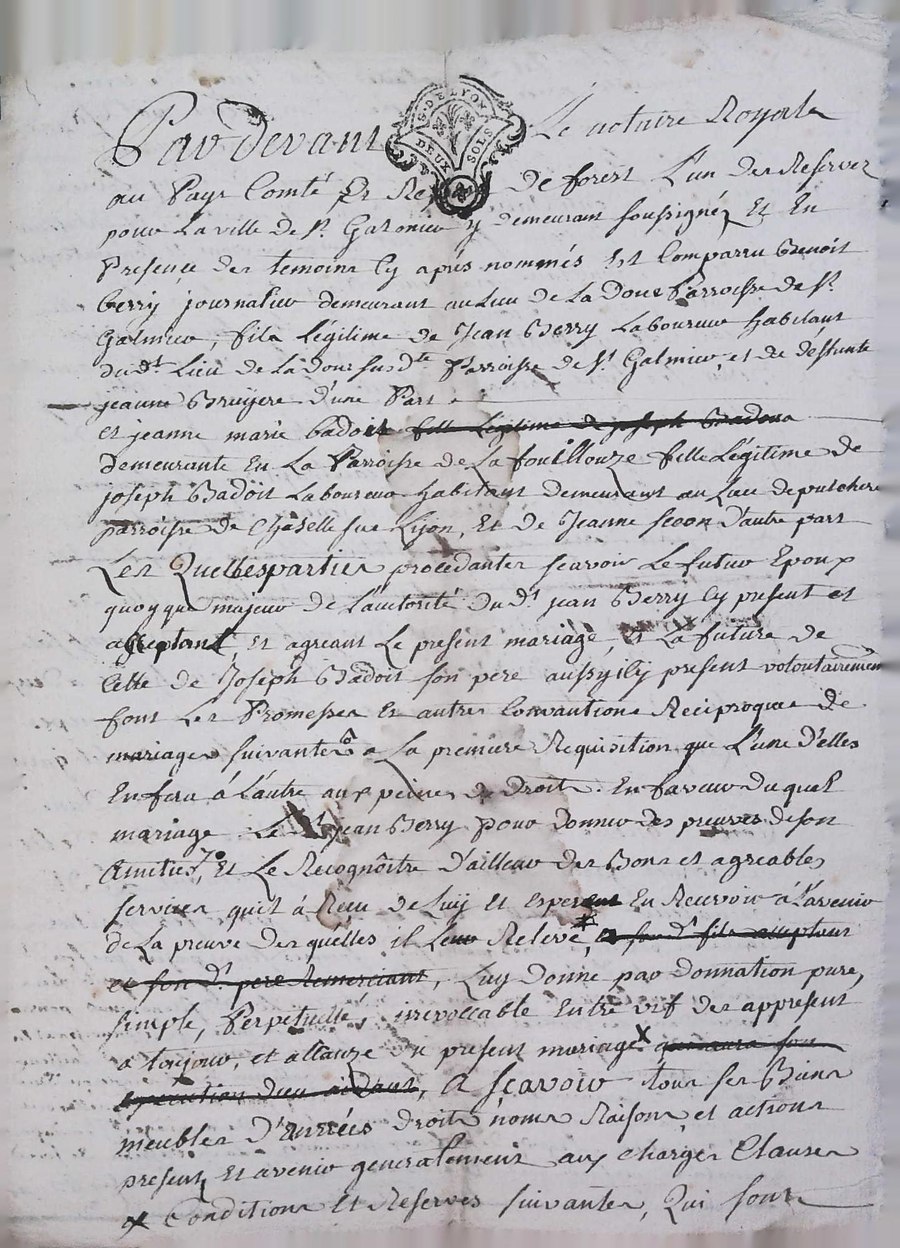 Par devant Le notaire Royale
G. DE LYON
DEUX SOLS
au Pays Comté Et De forest L'un des Reservez
pour La ville de St. Galmier y demeurant soussigné, Et En
Presence des temoins Cy aprés nommés Est Comparru Benoit
berry journalier demeurant au Lieu de La Doue Parroisse de St.
Galmier, fils Légitime de Jean Berry Laboureur habitant
dud.t Lieu de La Doue susd.te Parroisse de St. Galmier, et de deffunte
jeanne Bruyere d'une Part
et jeanne marie badoit fille Legitime de joseph Badoit
demeurante En La Parroisse de La fouillouze fille Légitime de
joseph Badoit Laboureur habitant demeurant au Lieu de
parroisse de Chaselle sur Lyon, Et de Jeanne d'autre part
Les Quelles parties procedantes scavoir Le futur Epoux
quoyque majeur de L'autorité dud.t jean Berry Cy present et
acceptant Et agreant Le present mariage, et La future de
Celle de Joseph Badoit son pere aussy icy present volontairement
font Les Promesses Et autres Convantions Reciproques de
mariages suivantes a La premiere Requisition que L'une d'elles
En fera á L'autre aux peines de droit. En faveur du quel
mariage Le dt jean Berry pour donner des preuves de son
Amitié, Et Le Recognoitre D'ailleur des Bons et agreables
services quil á Reçu de Luy Et esperent En Recevoir á L'avenir
de La preuve des quelles il Leur Releve, et son dt fils acceptant
et son dt pere Remerciant, Luy donne par donnation pure,
simple, Perpetuelle, irrevoccable Entre vif des appresent
a toujour, et attauze du present mariage x qui aura son
execution dieu aidant, A scavoir tous ses Biens
meubles D'anrées droits noms Raisons et actions
present Et avenir generalement aux charges Clauses
Conditions Et Reserves suivantes, Qui sont